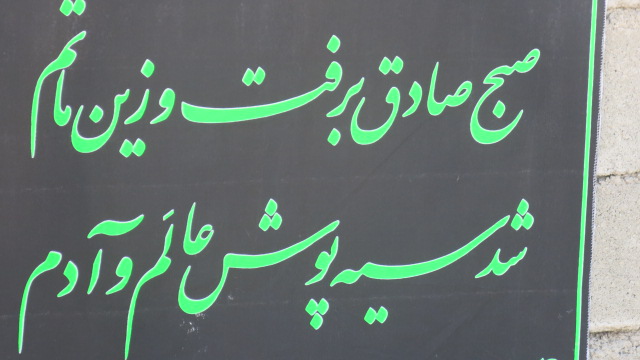 صبح صادق برفت و زین ماتم
شد سیه پوش عالَم و آدم